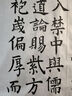 入禁中與儒
道論賜紫方
袍歲偏厚而